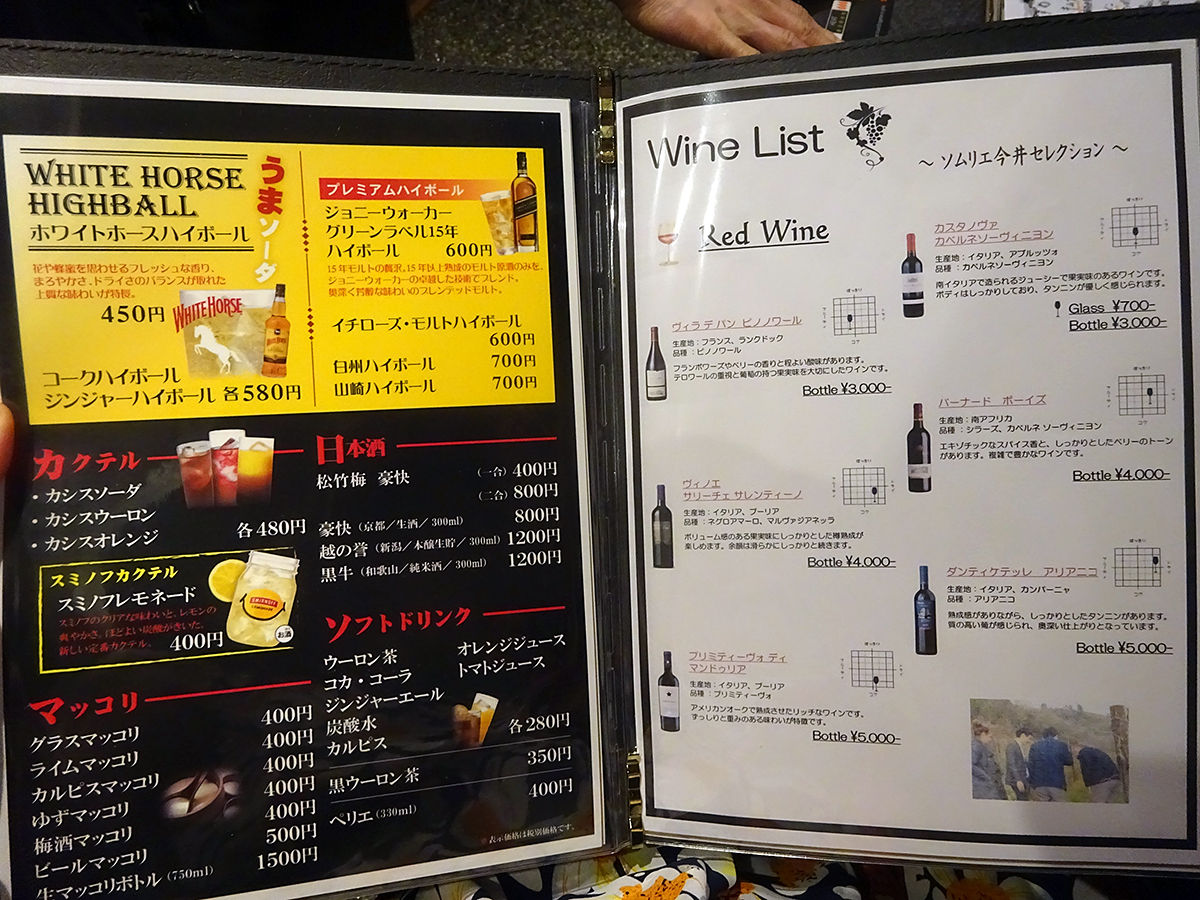 WHITE HORSE
HIGHBALL
ホワイトホースハイボール
うまソーダ
花や蜂蜜を思わせるフレッシュな香り、
まろやかさ、ドライさのバランスが取れた
上質な味わいが特長。
450円
WHITE HORSE
コークハイボール
ジンジャーハイボール 各580円
プレミアムハイボール
ジョニーウォーカー
グリーンラベル15年
ハイボール 600円
15年モルトの贅沢。15年以上熟成のモルト原酒のみを、
ジョニーウォーカーの卓越した技術でブレンド。
奥深く芳醇な味わいのブレンデッドモルト。
イチローズ・モルトハイボール
600円
白州ハイボール 700円
山崎ハイボール 700円
カクテル
・カシスソーダ
・カシスウーロン
・カシスオレンジ
各480円
スミノフカクテル
スミノフレモネード
スミノフのクリアな味わいと、レモンの
爽やかさ。ほどよい炭酸がきいた、
新しい定番カクテル。
400円
SMIRNOFF
LEMONADE
お酒
マッコリ
グラスマッコリ 400円
ライムマッコリ 400円
カルピスマッコリ 400円
ゆずマッコリ 400円
梅酒マッコリ 400円
ビールマッコリ 500円
生マッコリボトル(750ml) 1500円
日本酒
松竹梅 豪快 (一合) 400円
(二合) 800円
豪快(京都/生酒/300ml) 800円
越の誉(新潟/本醸生貯/300ml) 1200円
黒牛(和歌山/純米酒/300ml) 1200円
ソフトドリンク
ウーロン茶
コカ・コーラ
ジンジャーエール
炭酸水
カルピス
オレンジジュース
トマトジュース
各280円
黒ウーロン茶 350円
ペリエ(330ml) 400円
※表示価格は税別価格です。
Wine List
～ ソムリエ今井セレクション ～
Red Wine
ヴィラ デ パン ピノノワール
生産地:フランス、ラングドック
品種:ピノノワール
フランボワーズやベリーの香りと程よい酸味があります。
テロワールの重視と葡萄の持つ果実味を大切にしたワインです。
Bottle ¥3,000-
ヴィノエ
サリーチェ サレンティーノ
生産地:イタリア、プーリア
品種:ネグロアマーロ、マルヴァジアネッラ
ボリューム感のある果実味にしっかりとした樽熟成が
楽しめます。余韻は滑らかにしっかりと続きます。
Bottle ¥4,000-
プリミティーヴォ ディ
マンドゥリア
生産地:イタリア、プーリア
品種:プリミティーヴォ
アメリカンオークで熟成させたリッチなワインです。
ずっしりと重みのある味わいが特徴です。
Bottle ¥5,000-
カスタノヴァ
カベルネソーヴィニヨン
生産地:イタリア、アブルッツォ
品種:カベルネソーヴィニヨン
南イタリアで造られるジューシーで果実味のあるワインです。
ボディはしっかりしており、タンニンが優しく感じられます。
Glass ¥700-
Bottle ¥3,000-
バーナード ボーイズ
生産地:南アフリカ
品種:シラーズ、カベルネ ソーヴィニヨン
エキゾチックなスパイス香と、しっかりとしたベリーのトーン
があります。複雑で豊かなワインです。
Bottle ¥4,000-
ダンティケテッレ アリアニコ
生産地:イタリア、カンパーニャ
品種:アリアニコ
熟成感がありながら、しっかりとしたタンニンがあります。
質の高い葡が感じられ、奥深い仕上がりとなっています。
Bottle ¥5,000-